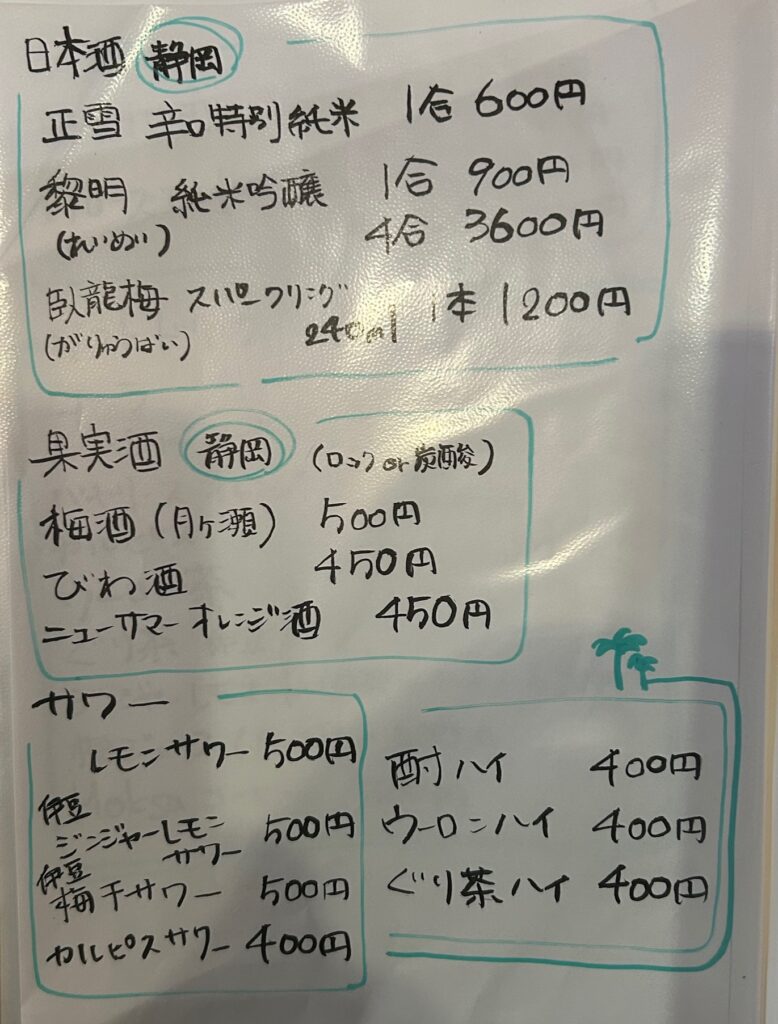 日本酒 静岡
正雪 辛口特別純米 1合 600円
黎明 純米吟醸 1合 900円
(れいめい) 4合 3600円
臥龍梅 スパークリング 240ml 1本 1200円
(がりゅうばい)
果実酒 静岡 (ロック or 炭酸)
梅酒 (月ヶ瀬) 500円
びわ酒 450円
ニューサマーオレンジ酒 450円
サワー
レモンサワー 500円
伊豆
ジンジャーレモン
サワー 500円
伊豆
梅干サワー 500円
カルピスサワー 400円
酎ハイ 400円
ウーロンハイ 400円
ぐり茶ハイ 400円